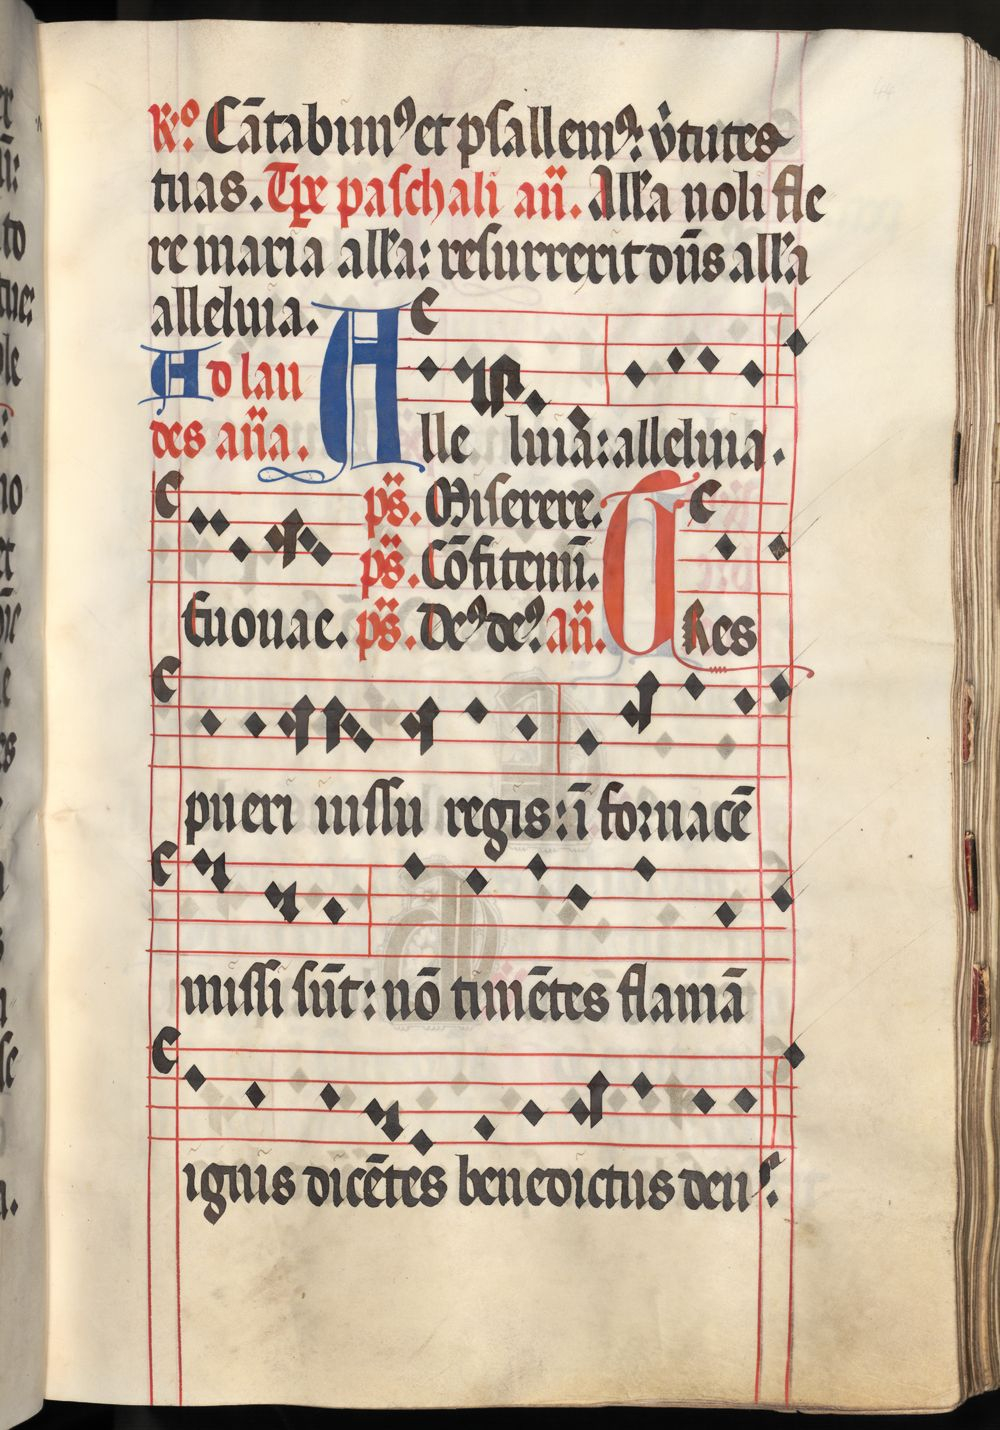 R̃o. Cãtabimꝰ et psallemꝰ: v̾tutes
tuas. Tp̄e paschali añ. All'a noli fle
re maria all'a: resurrexit dñs all'a
alleluia.
Ad lau
des aña.
Alle luia: alleluia.
ps̃. Miserere.
ps̃. Cõfitemi̅.
Euouae. ps̃. Deꝰ deꝰ. añ. Tres
pueri iussu regis: ĩ fornacẽ
missi sũt: nõ timẽtes flamã
ignis dicẽtes benedictus deuꝰ.